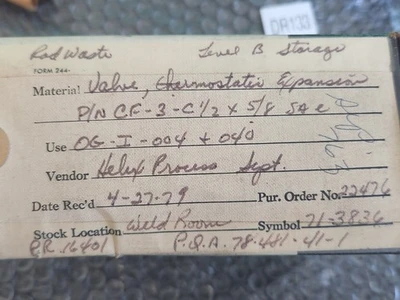 DA133
Rad Waste Level B Storage
FORM 244-
Material Valve, thermostatic Expansion
P/N CF-3-C 1/2 x 5/8 SAE
Use OG-I-004 + 040
Vendor Helex Process Sept.
Date Rec'd 4-27-79 Pur. Order No. 22476
Stock Location Weld Room Symbol 71-3836
P.R. 16401 P.O.A. 78-481-41-1